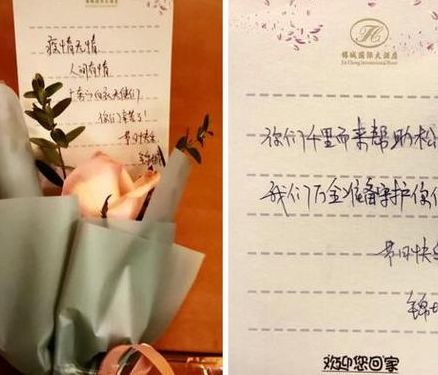 疫情无情
人间有情
你们辛苦了!
节日快乐
锦城国际大酒店
Jin Cheng International Hotel
你们千里而来帮助松
我们万全准备守护你们
节日快乐
锦城
欢迎您回家